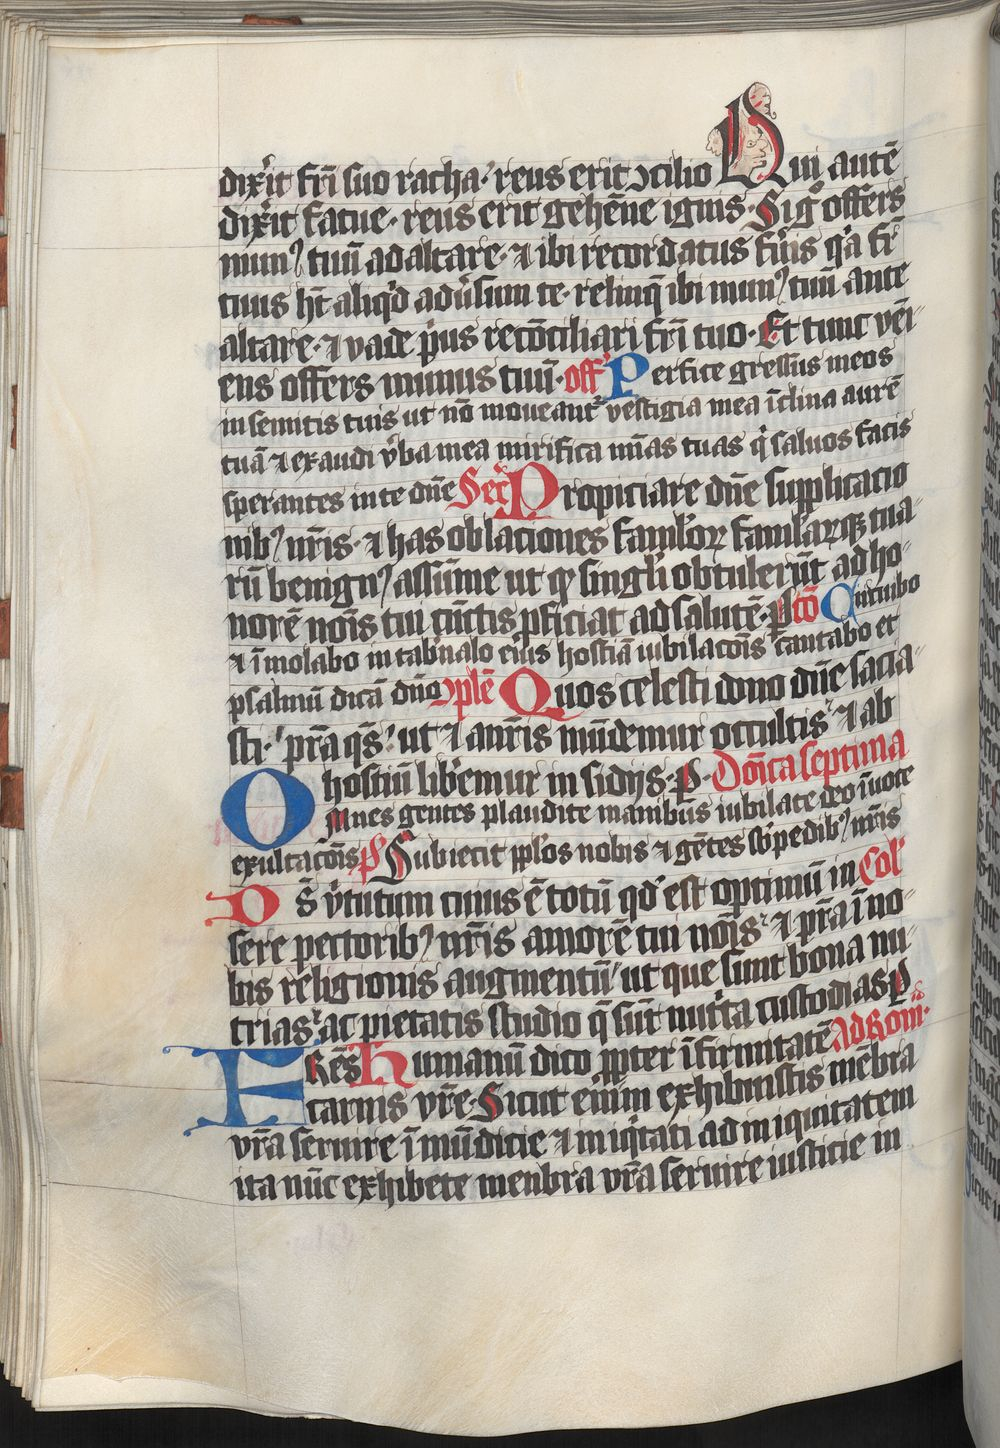 dix̾it fr̄i suo racha· reus erit ↄcilio Qui autē
dix̾it fatue· reus erit gehēne ignis· Sigͦ offers
munꝰ tuū ad altare· ⁊ ibi recordatus fu̾is qͥa fr̄
tuus hȝt aliqͥd adu̾sum te· relinqͣ ibi munꝰ tuū ante
altare· ⁊ vade pͥus recōciliari fr̄i tuo· Et tunc vēi-
ens offers munus tuū· off̾ Perfice gressus meos
in semitis tuis ut nō moueant᷑ vestigia mea īclina aurē
tuā ⁊ exaudi v̾ba mea mirifica mīas tuas qͥ saluos facis
sperantes in te dn̄e Secͬ Propiciare dn̄e supplicacio
nibꝰ nr̄is· ⁊ has oblaciones famulorꝫ famularꝫqꝫ tua-
rū benignꝰ assūme ut qͦ singl̾i obtulerūt ad ho-
norē nōis tui cūctis ꝓficiat ad salutē· ꝑ cō Circuibo
⁊ īmolabo in tab̾nalo eiꝰ hostiā iubilacōis cantabo et
psalmū dicā dn̄o ↄplē Quos celesti dono dn̄e sacia-
sti· pr̄a qͣs· ut ⁊ a nr̄is mūdemur occultis ⁊ ab
hostiū libemur insidijs· ꝑ· Dōica septima
Omnes gentes plaudite manibus iubilate deo ī uoce
exultacōis pͬs Subiecit pp̄los nobis ⁊ gētes sb̾ pedibꝰ nr̄is
Ds̄ v̾tutum cuius ē totū qd̾ est optimū in Col̾
sere pectoribꝰ nr̄is amorē tui nōis· ⁊ pr̄a ī no-
bis religionis augmentū· ut que sunt bona nu-
trias· ac pietatis studio qͣ sūt nut̾ta custodias ꝑ
Frēs humanū dico ꝓpter īfirmitatē Ad Romͣ·
carnis vr̄e· Sicut enim exhibuistis mēbra
vr̄a seruire īmūdicie ⁊ iniqͥtati ad iniquitatem
ita nūc exhibete menbra vr̄a seruire iusticie in